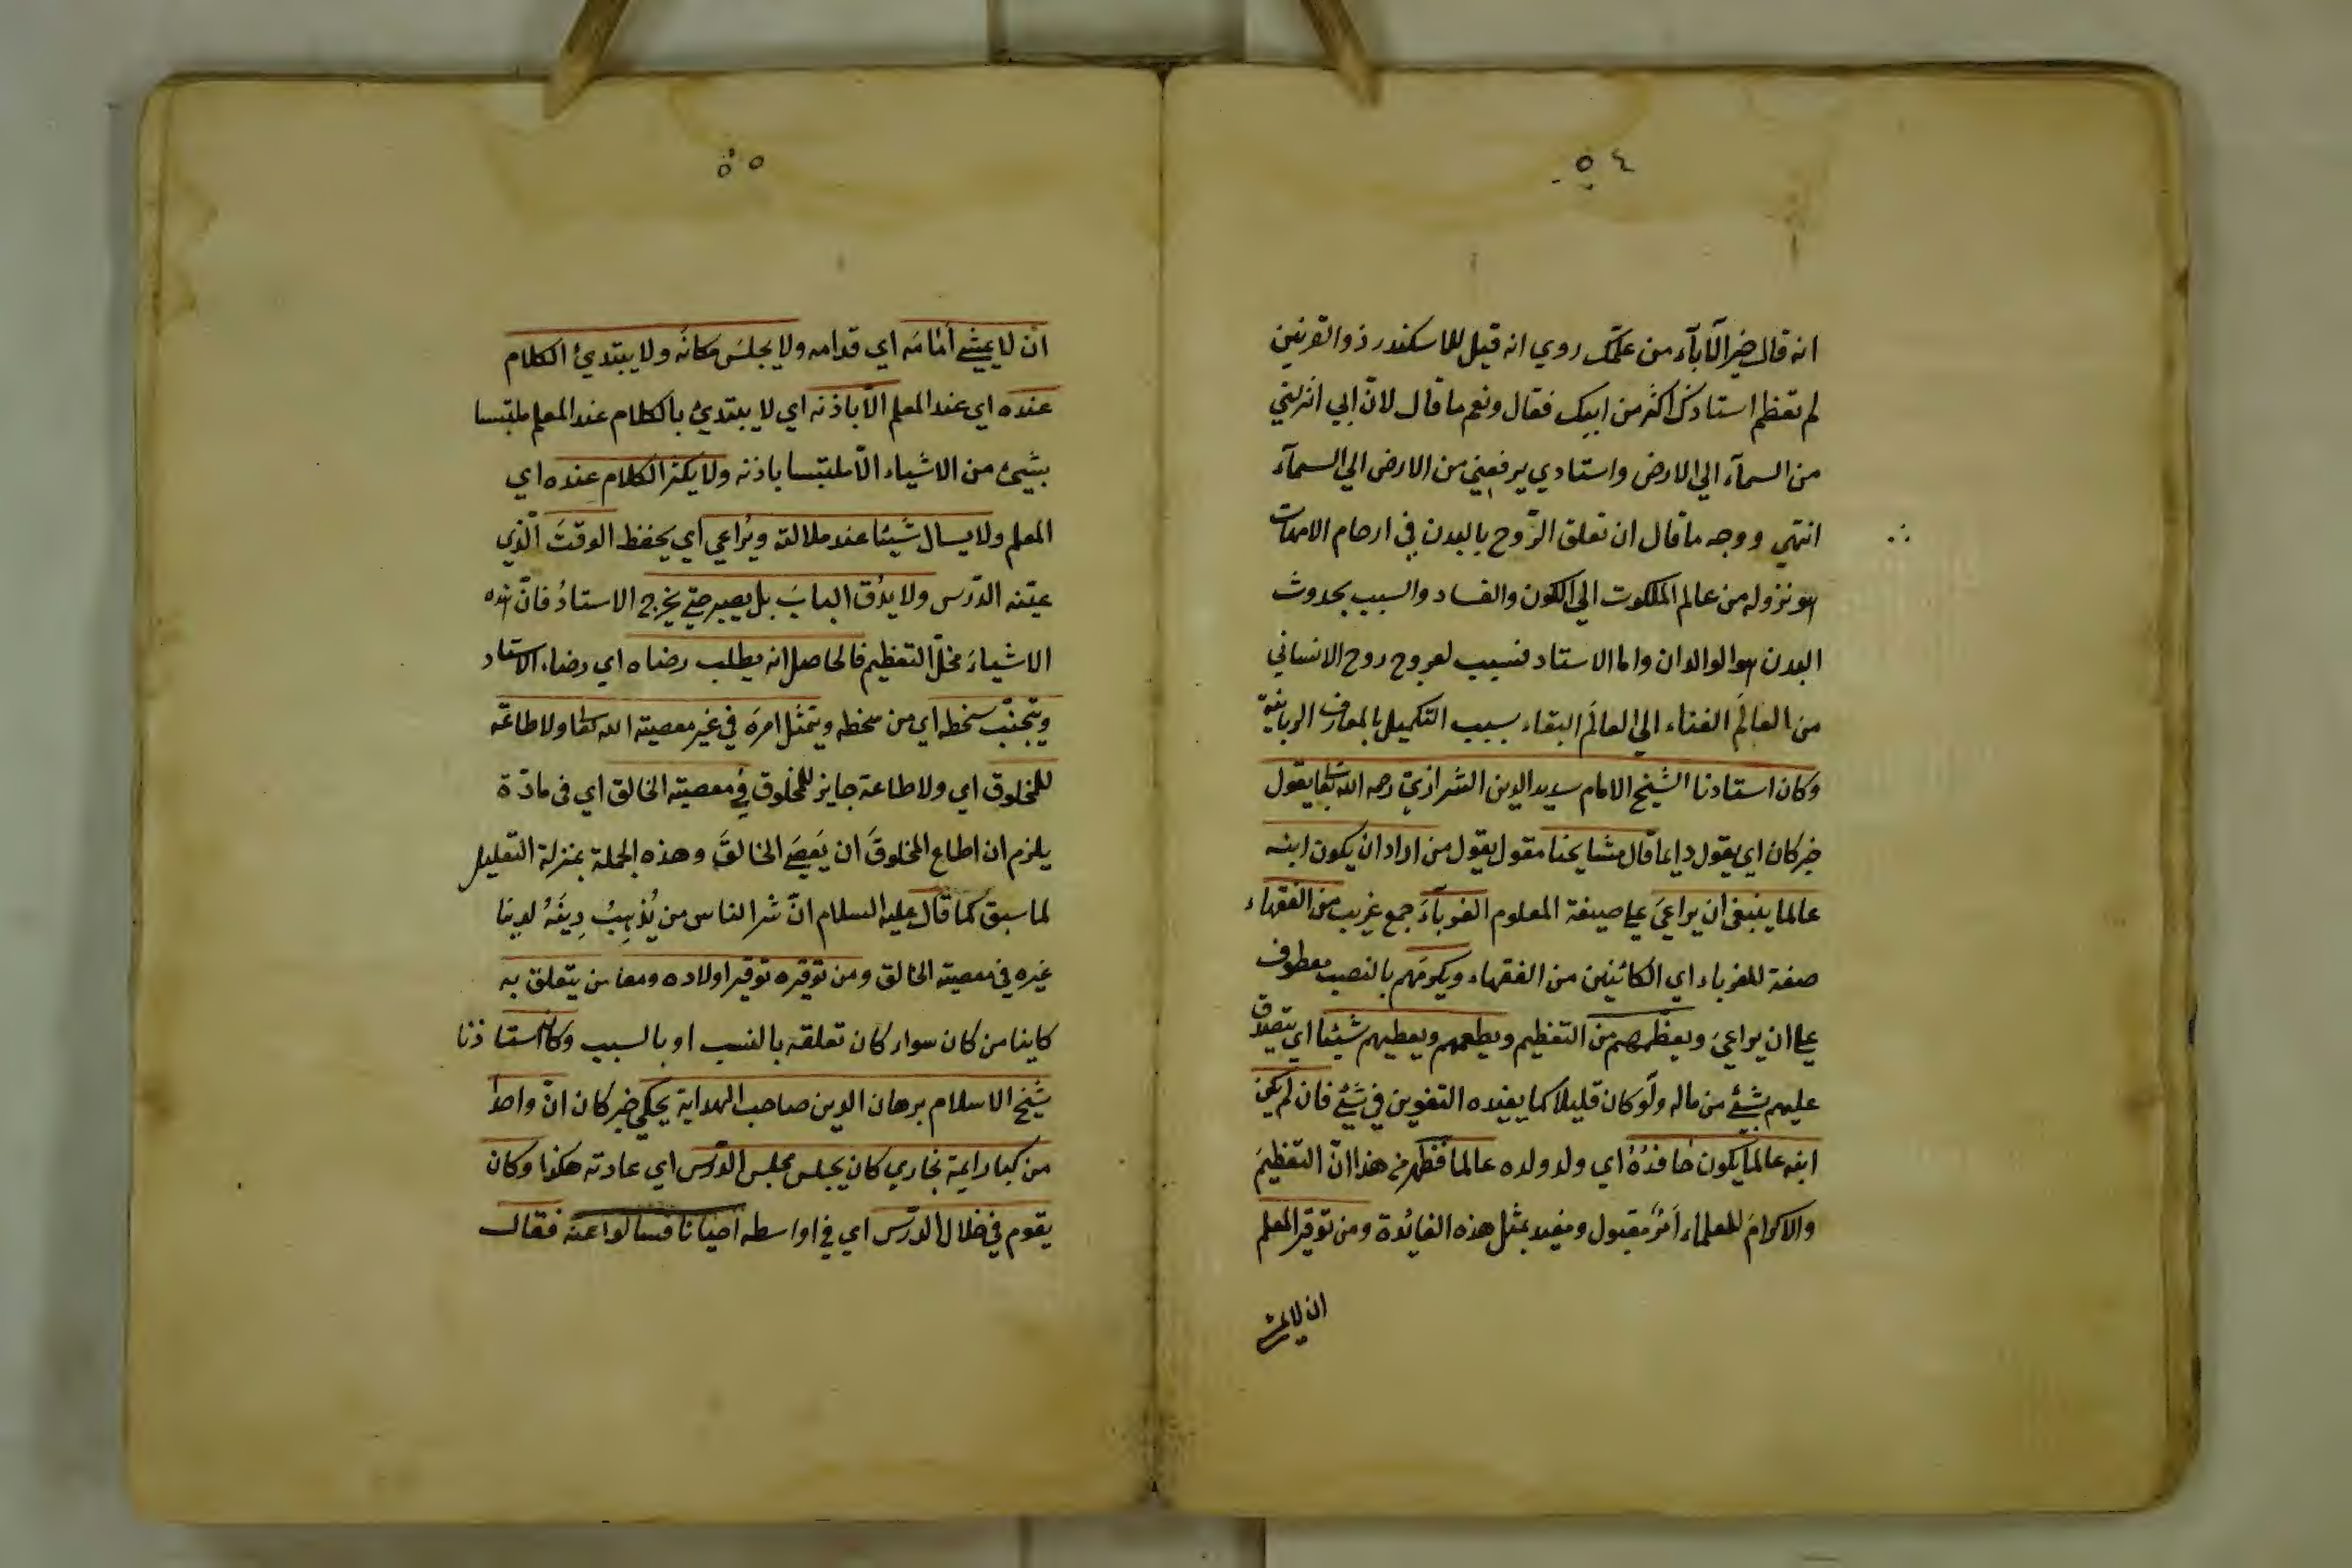 ٥٤
انه قال خير الآبآء من علمّك روي انه قيل للاسكندر ذو القرنين
لم تعظم استادك اكثر من ابيك فقال ونعم ما قال لانّ ابي انزلني
من السمآء الي الارض واستادي يرفعني من الارض الي السمآء
انتهي ووجه ما قال ان تعلق الرّوح بالبدن في ارحام الامهات
هو نزوله من عالم الملكوت الي الكون والفساد والسبب بحدوث
البدن هو الوالدان واما الاستاد فسبب لعروج روح الانساني
من العالَم الفناء الي العالَم البقاء بسبب التكميل بالمعارف الربانيّة
وكان استادنا الشيخ الامام سديد الدين الشرازيّ رحمه الله تعا يقول
خبر كان اي يقول دايما قال مشايخنا مقول يقول من اراد ان يكون ابنه
عالما ينبغي ان يراعيَ علي صيغة المعلوم الغربآءَ جمع غريب من الفقهاء
صفة للغرباء اي الكائنين من الفقهاء ويكرمَهم بالنصب معطوف
علي ان يراعيَ ويعظّمهم من التعظيم ويطعمهم ويعطيهم شيئا اي يتصدق
عليهم بشيئ من ماله ولو كان قليلا كما يفيده التنوين في شيئ فان لم يكن
ابنه عالما يكون حافدُهُ اي ولد ولده عالما فظهر من هذا انّ التعظيمَ
والاكرامَ للعلماء اَمرٌ مقبول ومفيد بمثل هذه الفايُدة ومن توقير المعلم
ان لا يمشي
٥٥
ان لا يمشي أمامَه اي قدامه ولا يجلسَ مكانَه ولا يبتديُ الكلام
عنده اي عند المعلم الّا باذنه اي لا يبتديُ بالكلام عند المعلم ملتبسا
بشيئ من الاشياء الّا ملتبسا باذنه ولا يكثر الكلام عنده اي
المعلم ولا يسال شيئا عند ملالته ويُراعي اي يحفظ الوقتَ الّذي
عيّنه الدّرس ولا يدُق البابَ بل يصبر حتي يخرج الاستادُ فانّ هذه
الاشياءَ مخلّ التعظيم فالحاصل انه يطلب رضاه اي رضاء الاستاد
ويتجنّب سخطه اي من سخطه ويتمثل امرَه في غير معصيته الله تعا ولا طاعةَ
للمخلوق اي ولا طاعة جايز للمخلوق في معصيته الخالق اي في مادّة
يلزم ان اطاع المخلوقَ ان يَعصَي الخالقَ وهذه الجملة بمنزلة التعليل
لما سبق كما قال عليه السلام انّ شر الناس من يُذهِبُ دِينَهُ لدينا
غيره في معصيته الخالق ومن توقيره توقير اولاده ومعا من يتعلق به
كاينا من كان سواء كان تعلقه بالنسب او بالسبب وكان استاذنا
شيخ الاسلام برهان الدين صاحب الهداية يحكي خبر كان انّ واحدا
من كبار ايمة بخاري كان يجلس مجلس الدّرس اي عادته هكذا وكان
يقوم في خلال الدّرس اي في اواسطه احيانا فسالوا عنه فقال